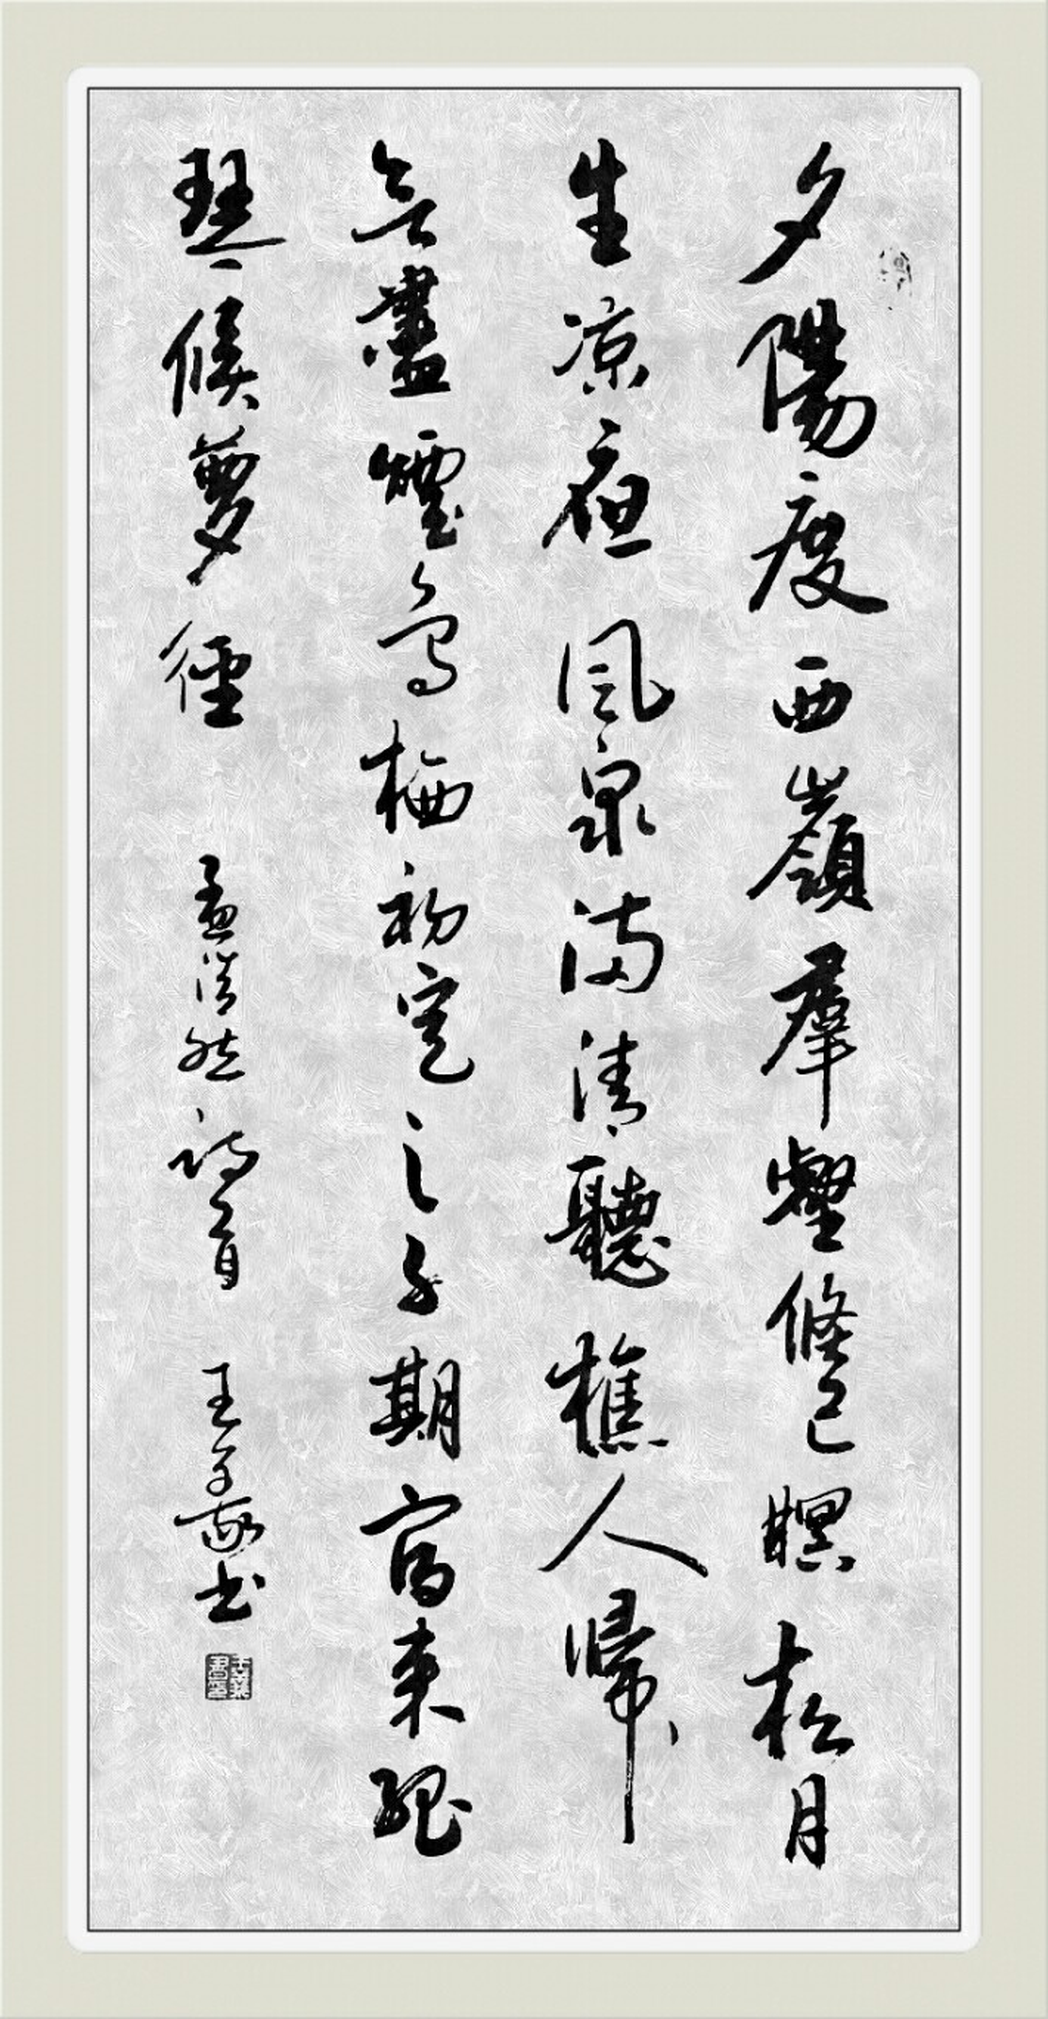 夕陽度西嶺羣壑倏已暝松月
生凉夜風泉滿清聽樵人歸
無盡煙鳥栖初定之子期宿來孤
琴候萝徑 孟浩然詩一首 王子书